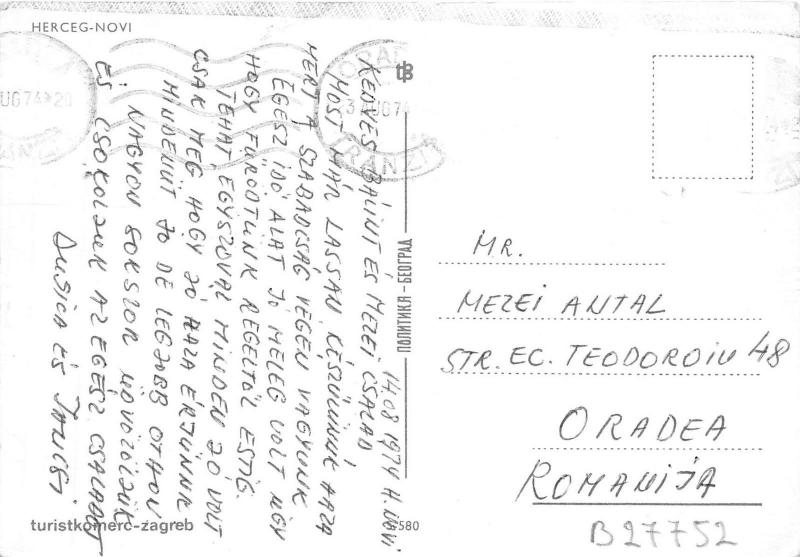 HERCEG-NOVI
14.08 1974 H. NOVI
KEDVES BÁLINT ÉS MEZEI CSALAD
MOST MÁR LASSAN KÉSZÜLÜNK HAZA
MERT A SZABADCSÁG VÉGEN VAGYUNK
EGÉSZ IDŐ ALAT JÓ MELEG VOLT ÚGY
HOGY FÜRÖDTÜNK REGELTŐL ESTÍG.
TEHÁT EGYSZÓVAL MINDEN JO VOLT
CSAK MÉG HOGY JÓ HAZA ÉRJÜNK
MINDENÜT JO DE LEGJOBB OTHON
NAGYON SOKSZOR ÜDVÖZÖLJÜK
ÉS CSÓKOLJUK AZ EGÉSZ CSALADOT
DUSICA ÉS JANCSI
turistkomerc-zagreb
5580
ПОЛИТИКА - БЕОГРАД
ORAD
3 AUG 74
TRANZIT
UG 74 20
MR.
MEZEI ANTAL
STR. EC. TEODOROIU 48
ORADEA
ROMANIJA
B27752